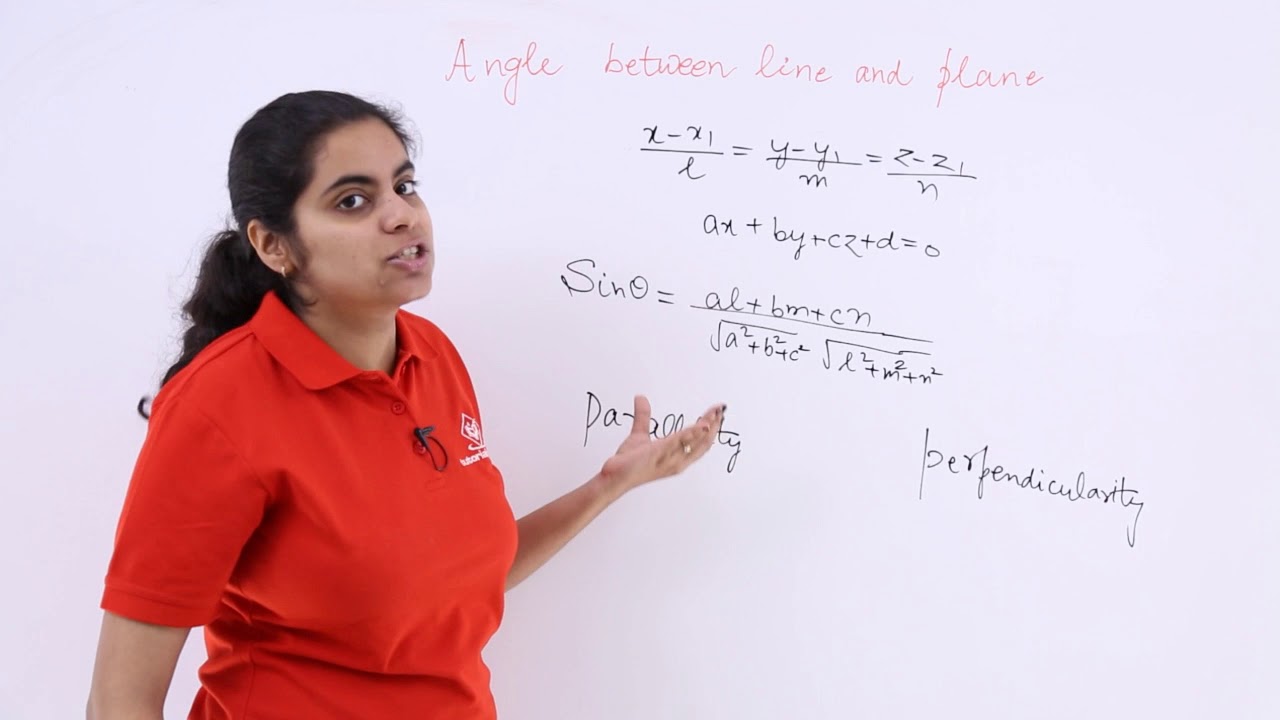 Angle between line and plane
x-x₁/l = y-y₁/m = z-z₁/n
ax+by+cz+d=0
Sinθ = al+bm+cn/√a²+b²+c² √l²+m²+n²
perpendicularity